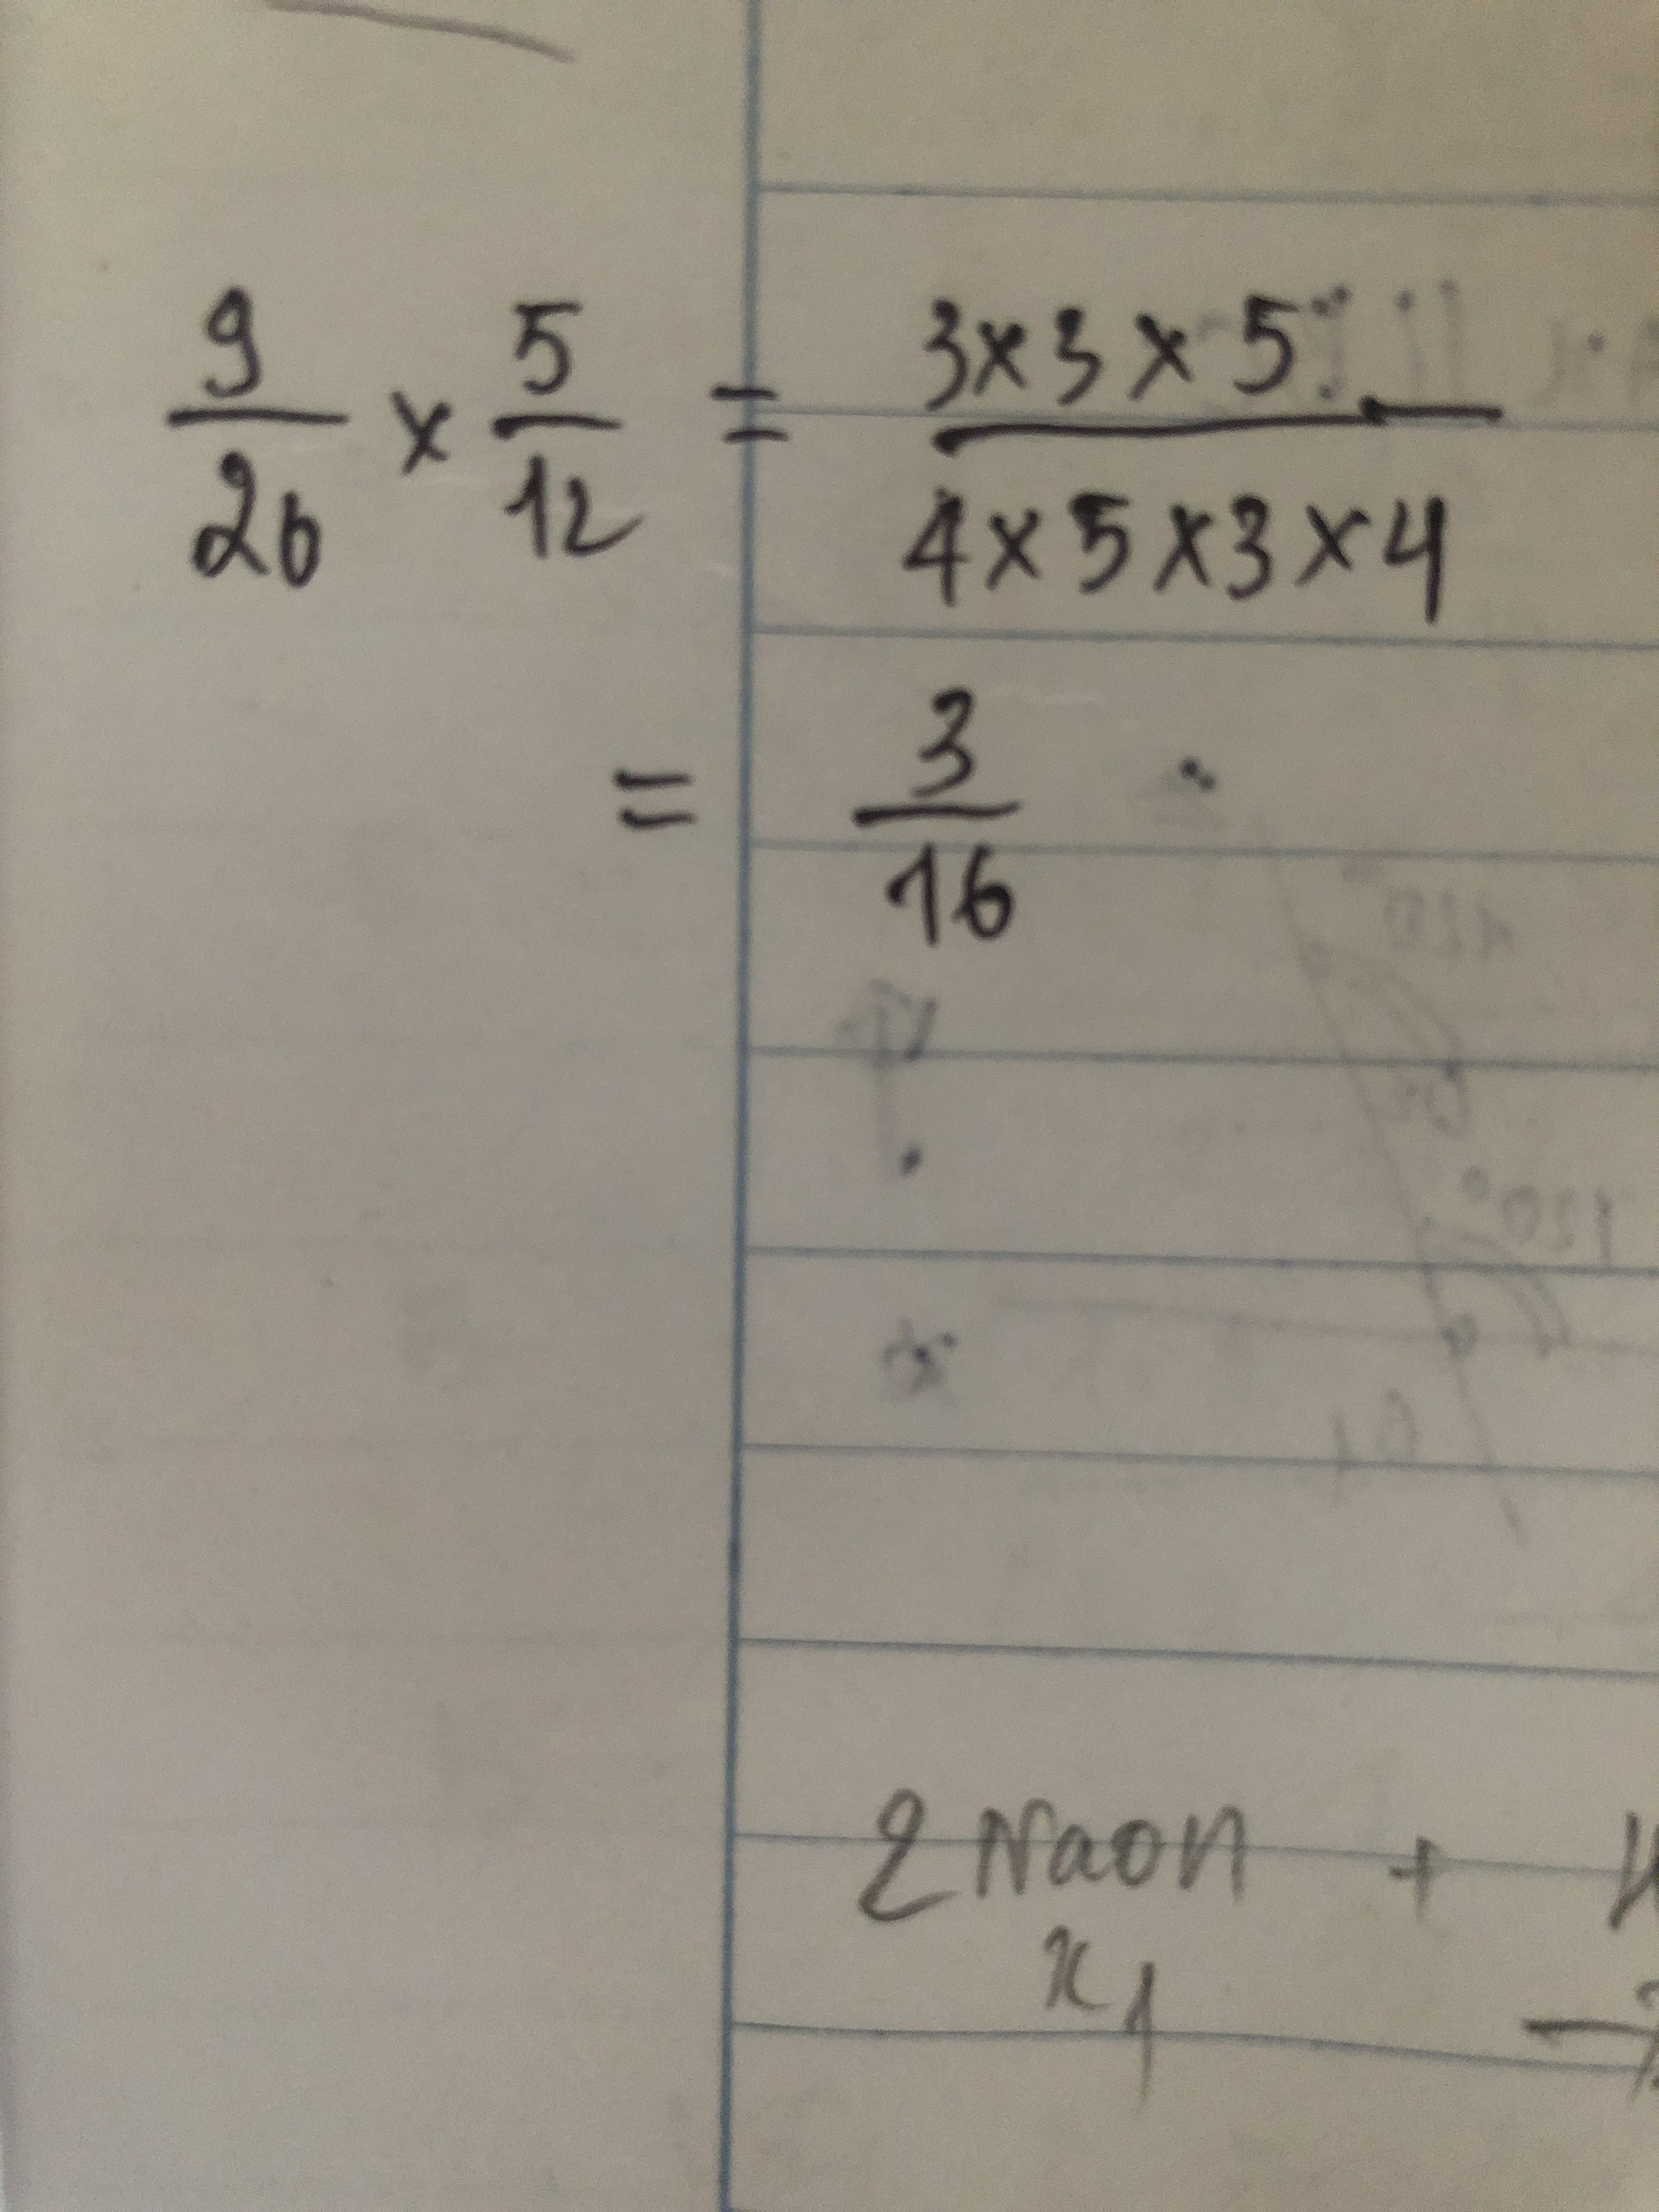 9/20 × 5/12 = 3×3×5 / 4×5×3×4
= 3/16
2NaOH +
x1